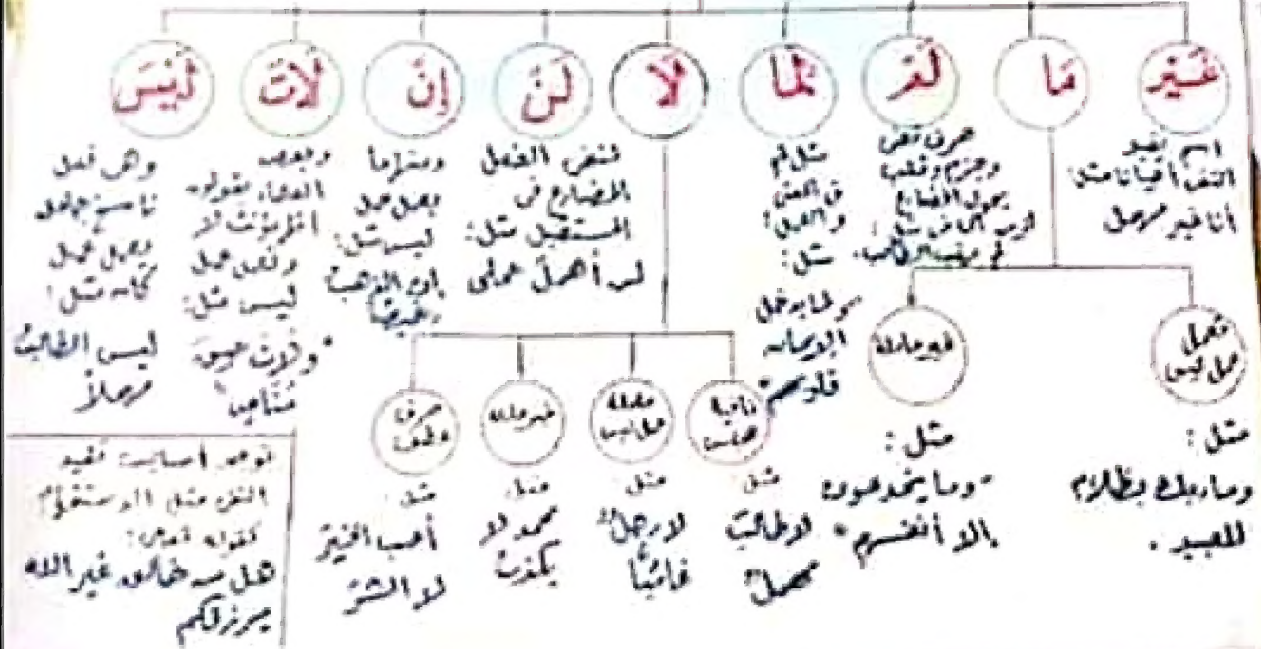 غَيْر
مَا
لَمْ
لَمَّا
لَا
لَنْ
إِنْ
لَاتَ
لَيْسَ
اسم يفيد
النفي أحيانا مثل:
أنا غير مهمل
حرف نفي
وجزم وقلب
يحول المضارع
مثل لم
في المعنى
والعمل
مثل:
ولما يدخل
الإيمان
قلوبكم
لنفي الفعل
المضارع في
المستقبل مثل:
لن أهمل عملي
يعمل عمل
ليس مثل:
إن الذهب
رخيصًا
وتعمل عمل
ليس مثل:
"ولات حين
مناص"
وهي فعل
ناسخ جامد
يعمل عمل
كان مثل:
ليس الطالبُ
مهملاً
تعمل
عمل ليس
مثل:
وما ربك بظلام
للعبيد.
غير عاملة
مثل:
"وما يخدعون
إلا أنفسهم"
نافية
للجنس
مثل:
لا طالبَ
مهملٌ
عاملة
عمل ليس
مثل:
لا رجلٌ
غائبًا
غير عاملة
مثل:
محمد لا
يكذبُ
حرف
عطف
مثل:
أحب الخيرَ
لا الشرَّ
توجد أساليب تفيد
النفي مثل الاستفهام
كقوله تعالى:
هل من خالق غير الله
يرزقكم